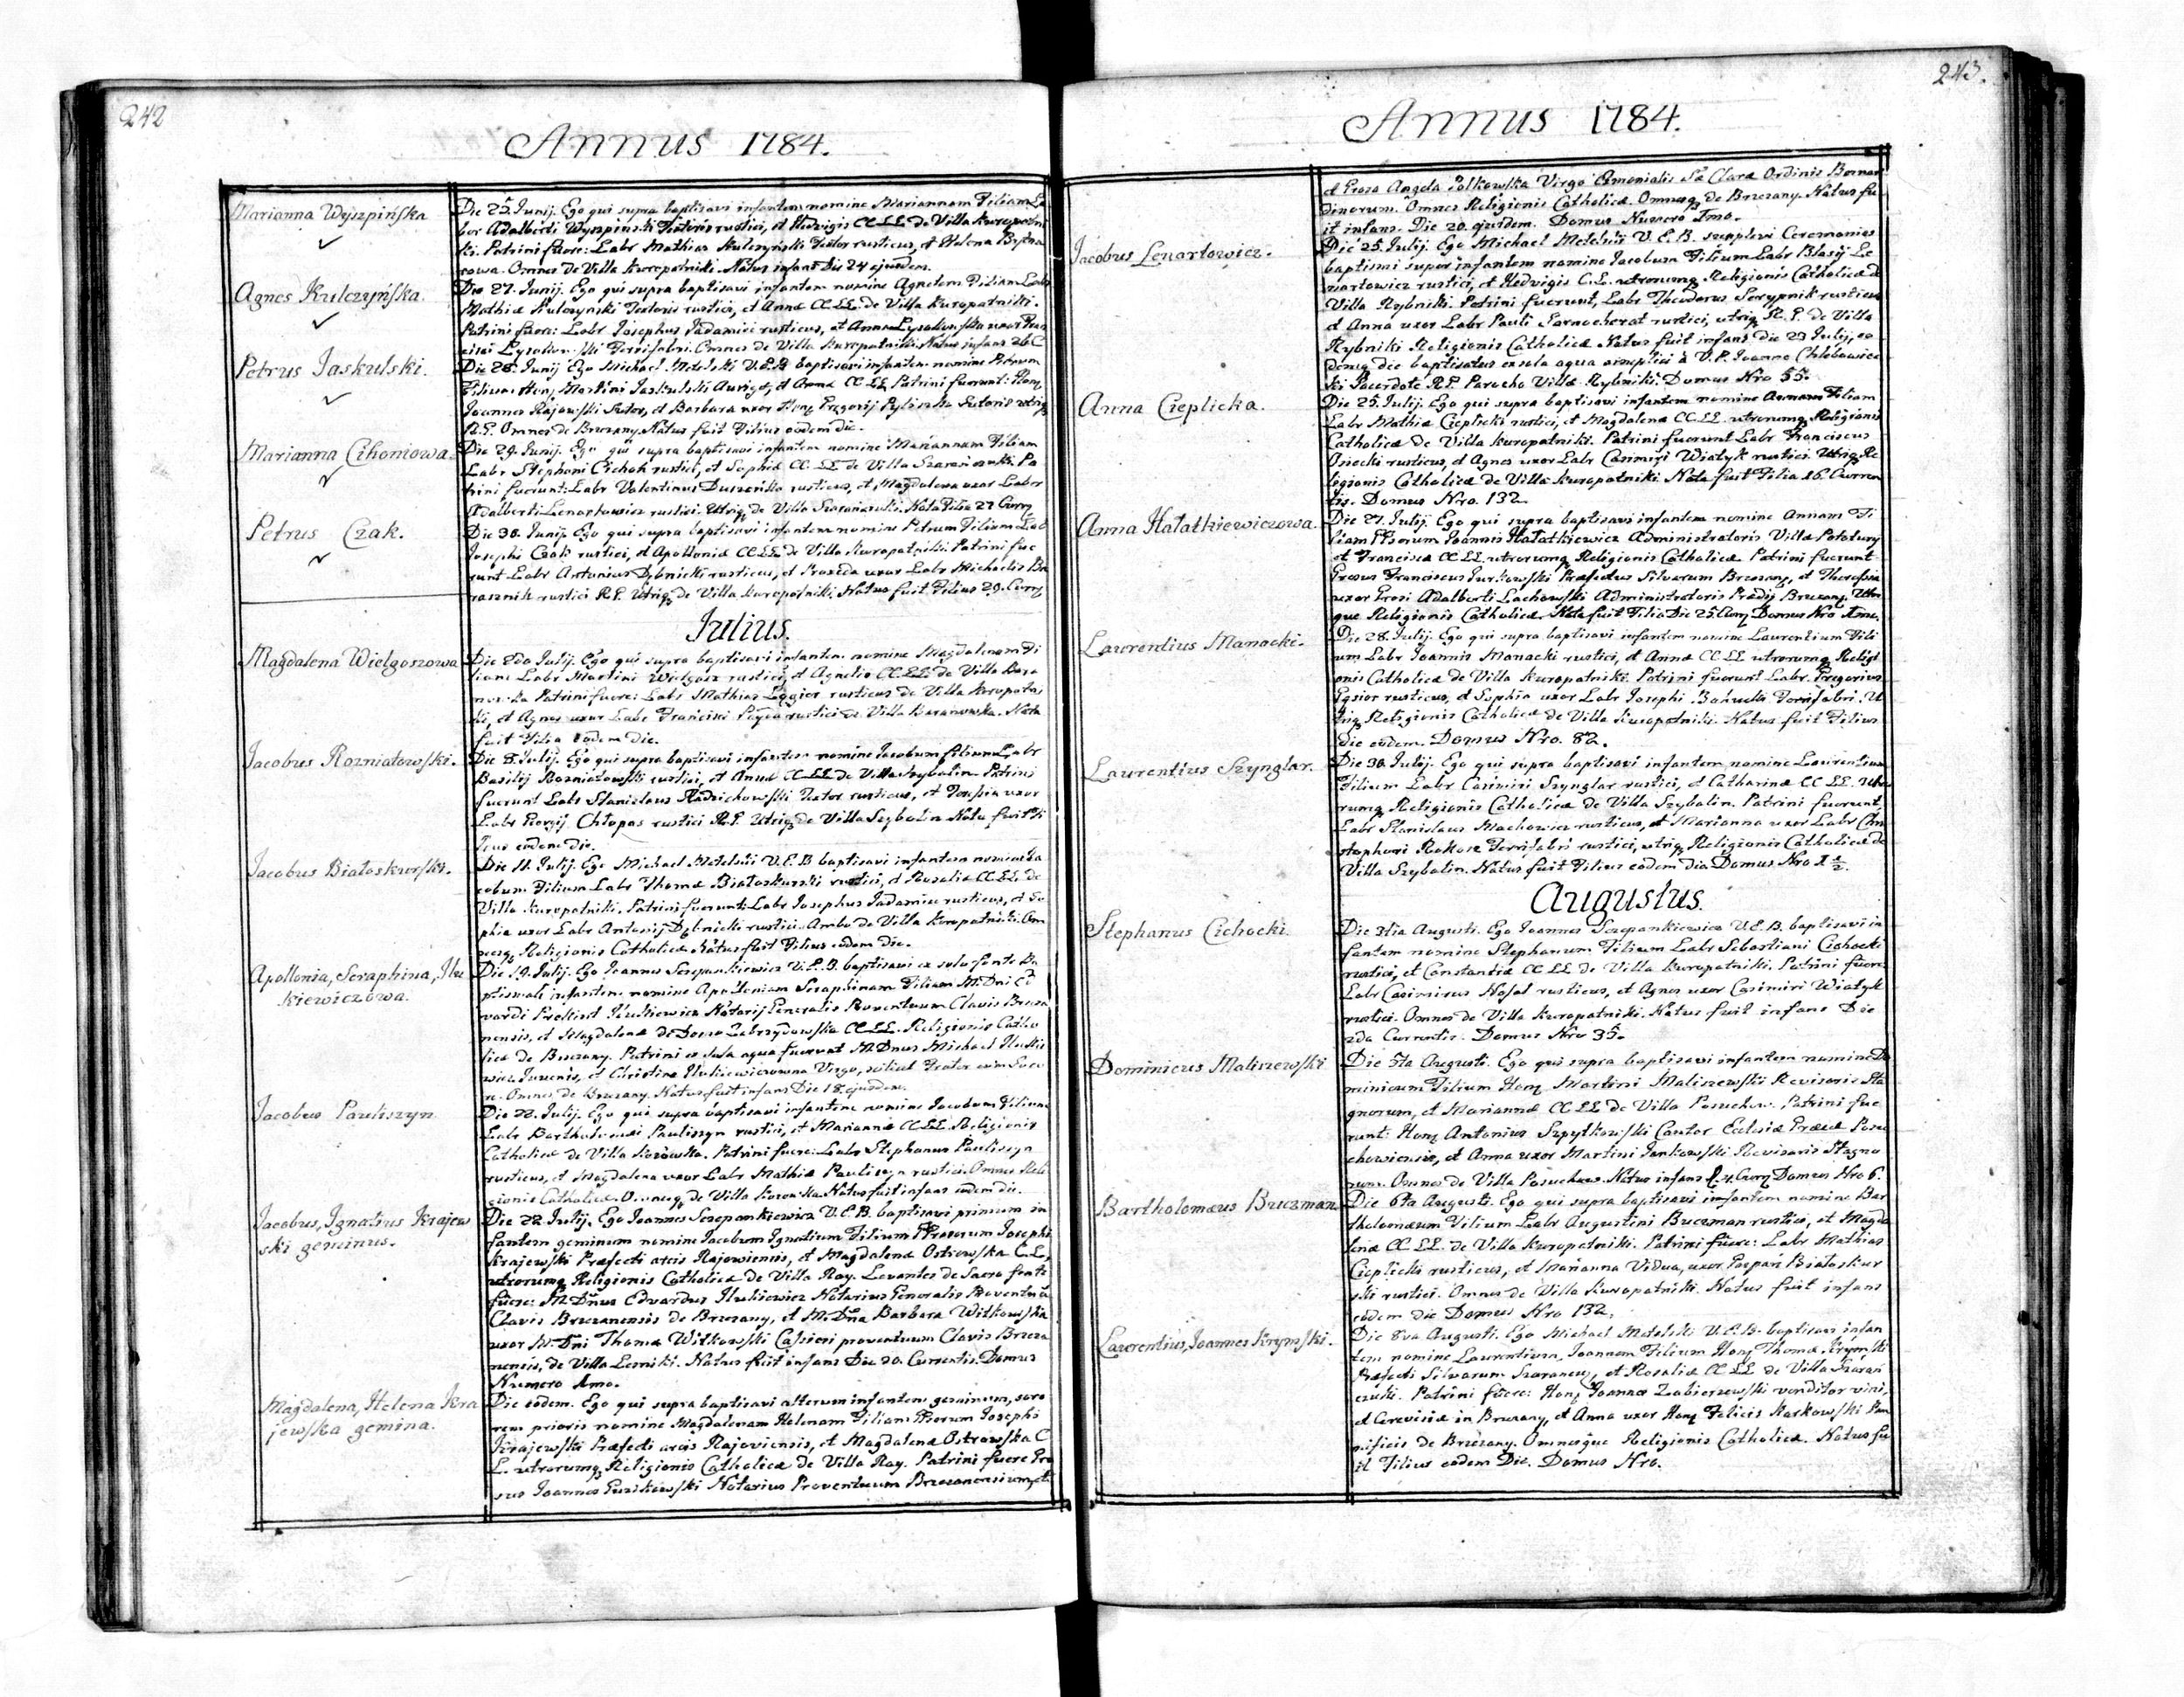 242
Annus 1784.
Marianna Wyszpińska
Die 25. Junij. Ego qui supra baptisavi infantem nomine Mariannam Filiam La
bor Adalberti Wyszpinski Textoris rustici, et Hedvigis CC.LL. de Villa Kuropatni
ki. Patrini fuere: Labr Mathias Kulczynski Textor rusticus, et Helena
rowa. Omnes de Villa Kuropatniki. Natus infans Die 24 ejusdem.
Agnes Kulczyńska.
Die 27. Junij. Ego qui supra baptisavi infantem nomine Agnetem Filiam Labr
Mathiæ Kulczynski Textoris rustici, et Annæ CC.LL. de Villa Kuropatniki.
Patrini fuere: Labr Josephus Jadamiec rusticus, et Anna uxor
Ferrifabri. Omnes de Villa Kuropatniki. Natus infans 26 C
Petrus Jaskulski.
Die 28. Junij Ego Michael Metelski V.E.B. baptisavi infantem nomine Petrum
Filium Hon Martini Jaskulski Aurigæ, et Annæ CC.LL. Patrini fuerunt: Hon
Joannes Rajowski Sutor, et Barbara uxor Hon Gregorij Sutoris utriq
R.C. Omnes de Brzezany. Natus fuit Filius eodem die.
Marianna Cihoniowa.
Die 29. Junij. Ego qui supra baptisavi infantem nomine Mariannam Filiam
Labr Stephani Cichoń rustici, et Sophiæ CC.LL. de Villa Pa
trini fuerunt: Labr Valentinus rusticus, et Magdalena uxor Labor
Adalberti Lenartowicz rustici. Utriq de Villa Nata Filia 27 Curr
Petrus Czak.
Die 30. Junij Ego qui supra baptisavi infantem nomine Petrum Filium Lab
Josephi Czak rustici, et Apolloniæ CC.LL. de Villa Kuropatniki. Patrini fue
runt Labr Antonius Dybnicki rusticus, et Praxeda uxor Labr Michaelis
rustici R.C. Utriq de Villa Kuropatniki. Natus fuit Filius 29. Curr
Julius.
Magdalena Wielgoszowa
Die 2da Julij. Ego qui supra baptisavi infantem nomine Magdalenam Fi
liam Labr Martini Wielgosz rustici, et Agnetis CC.LL. de Villa Bara
nowka Patrini fuere: Labr Mathias rusticus de Villa Kuropatni
ki, et Agnes uxor Labr Francisci rustici de Villa Baranowka. Nata
fuit Filia eodem die.
Jacobus Rozniatowski.
Die 8. Julij. Ego qui supra baptisavi infantem nomine Jacobum filium Labr
Basilij Rozniatowski rustici, et Annæ CC.LL. de Villa Szybalin. Patrini
fuerunt Labr Stanislaus Textor rusticus, et uxor
Labr Georgij Chłopas rustici R.C. Utriq de Villa Szybalin Natus fuit Fi
lius eodem die.
Jacobus Białoskurski.
Die 11. Julij. Ego Michael Metelski V.E.B. baptisavi infantem nomine Ja
cobum Filium Labr Thomæ Białoskurski rustici, et Rosaliæ CC.LL. de
Villa Kuropatniki. Patrini fuerunt: Labr Josephus Jadamiec rusticus, et So
phia uxor Labr Antonij Dybnicki rustici. Ambo de Villa Kuropatniki. Om
nesq Religionis Catholicæ Natus fuit Filius eodem die.
Apollonia, Seraphina, Ilu
kiewiczowa.
Die 19. Julij. Ego Joannes Szczepankiewicz V.E.B. baptisavi ex solo fonte ba
ptismali infantem nomine Apolloniam Seraphinam Filiam M.Dni Ed
vardi Ilukiewicz Notarij Generalis Proventuum Clavis Brzeza
nensis, et Magdalenæ de Domo Zebrzydowska CC.LL. Religionis Catho
licæ de Brzezany. Patrini ex sola aqua fuerunt M.Dnus Michael Ilukie
wicz Juvenis, et Christina Ilukiewiczowna Virgo, scilicet Frater cum Soro
re. Omnes de Brzezany. Natus fuit infans Die 18 ejusdem.
Jacobus Pauliszyn
Die 22. Julij. Ego qui supra baptisavi infantem nomine Jacobum Filium
Labr Bartholomæi Pauliszyn rustici, et Mariannæ CC.LL. Religionis
Catholicæ de Villa Patrini fuere: Labr Stephanus Pauliszyn
rusticus, et Magdalena uxor Labr Mathiæ Pauliszyn rustici. Omnes Reli
gionis Catholicæ. Omnesq de Villa Natus fuit infans eodem die.
Jacobus, Ignatius Krajew
ski geminus.
Die 22 Julij. Ego Joannes Szczepankiewicz V.E.B. baptisavi primum in
fantem geminum nomine Jacobum Ignatium Filium Josephi
Krajewski Præfecti arcis Rajoviensis, et Magdalenæ Ostrowska C.L.
utrorumq Religionis Catholicæ de Villa Ray. Levantes de Sacro fonte
fuere: M.Dnus Edvardus Ilukiewicz Notarius Generalis Proventuum
Clavis Brzezanensis de Brzezany, et M.Dna Barbara Witkowska
uxor M.Dni Thomæ Witkowski Cassieri proventuum Clavis Brzeza
nensis, de Villa Lesniki. Natus fuit infans Die 20. Currentis. Domus
Numero 1mo.
Magdalena, Helena Kra
jewska gemina.
Die eodem. Ego qui supra baptisavi alterum infantem geminum, soro
rem prioris nomine Magdalenam Helenam Filiam Josephi
Krajewski Præfecti arcis Rajoviensis, et Magdalenæ Ostrowska C
L. utrorumq Religionis Catholicæ de Villa Ray. Patrini fuere Gro
sus Joannes Notarius Proventuum Brzezanensium, et
243.
Annus 1784.
et Grosa Angela Virgo Stæ Claræ Ordinis Bernar
dinorum. Omnes Religionis Catholicæ. Omnesq de Brzezany. Natus fu
it infans. Die 20. ejusdem. Domus Numero 1mo.
Jacobus Lenartowicz.
Die 25. Julij. Ego Michael Metelski V.E.B. supplevi Ceremonias
baptismi super infantem nomine Jacobum Filium Labr Blasij Le
nartowicz rustici, et Hedvigis C.L. utrorumq Religionis Catholicæ de
Villa Rybniki. Patrini fuerunt, Labr Theodorus Skrypnik rusticus
et Anna uxor Labr Pauli rustici, utriq R.G. de Villa
Rybniki Religionis Catholicæ Natus fuit infans die 23 Julij, eo
demq die baptisatus ex sola aqua simplici à V.P. Joanne Chlebowiec
ki Sacerdote R.G. Parocho Villæ Rybniki. Domus Nro 55.
Anna Cieplicka.
Die 25. Julij. Ego qui supra baptisavi infantem nomine Annam Filiam
Labr Mathiæ Cieplicki rustici, et Magdalenæ CC.LL. utrorumq Religionis
Catholicæ de Villa Kuropatniki. Patrini fuerunt Labr Franciscus
Osiecki rusticus, et Agnes uxor Labr Casimiri Wiatyk rustici. Utriq Re
ligionis Catholicæ de Villa Kuropatniki. Nata fuit Filia 16. Curren
tis. Domus Nro. 132.
Anna Hałatkiewiczowa.
Die 27. Julij. Ego qui supra baptisavi infantem nomine Annam Fi
liam Joannis Hałatkiewicz Administratoris Villæ Potutury
et Franciscæ CC.LL. utrorumq Religionis Catholicæ Patrini fuerunt
Grosus Franciscus Gurkowski Præfectus Silvarum Brzezany, et Theressia
uxor Grosi Adalberti Lachowski Administratoris Prædij Brzezany. Utri
que Religionis Catholicæ. Nata fuit Filia Die 25 Curr Domus Nro 1mo.
Laurentius Manacki.
Die 28. Julij. Ego qui supra baptisavi infantem nomine Laurentium Fili
um Labr Joannis Manacki rustici, et Annæ CC LL utrorumq Religi
onis Catholicæ de Villa Kuropatniki. Patrini fuerunt Labr Gregorius
Gąsior rusticus, et Sophia uxor Labr Josephi Ferrifabri. U
triq Religionis Catholicæ de Villa Kuropatniki. Natus fuit Filius
die eodem. Domus Nro. 82.
Laurentius Szynglar.
Die 30. Julij. Ego qui supra baptisavi infantem nomine Laurentium
Filium Labr Casimiri Szynglar rustici, et Catharinæ CC LL. utro
rumq Religionis Catholicæ de Villa Szybalin. Patrini fuerunt,
Labr Stanislaus Machowicz rusticus, et Marianna uxor Labr Chri
stophori Rokosz Ferrifabri rustici, utriq Religionis Catholicæ de
Villa Szybalin. Natus fuit Filius eodem die Domus Nro 1 1/2.
Augustus.
Stephanus Cichocki.
Die 3tia Augusti. Ego Joannes Szczepankiewicz V.E.B. baptisavi in
fantem nomine Stephanum Filium Labr Sebastiani Cichocki
rustici, et Constantiæ CC LL de Villa Kuropatniki. Patrini fuere
Labr Casimirus Nosal rusticus, et Agnes uxor Casimiri Wiatyk
rustici. Omnes de Villa Kuropatniki. Natus fuit infans Die
2da Currentis. Domus Nro 35.
Dominicus Maliszewski
Die 5ta Augusti. Ego qui supra baptisavi infantem nomine Do
minicum Filium Hon Martini Maliszewski Revisoris Sta
gnorum, et Mariannæ CC LL de Villa Posuchow. Patrini fue
runt: Hon Antonius Szpytkowski Cantor Ecclesiæ Posu
choviensis, et Anna uxor Martini Jankowski Revisoris Stagno
rum. Omnes de Villa Posuchow. Natus infans 4. Curr Domus Nro 6.
Bartholomæus Buczman.
Die 6ta Augusti. Ego qui supra baptisavi infantem nomine Bar
tholomæum Filium Labr Augustini Buczman rustici, et Magda
lenæ CC LL. de Villa Kuropatniki. Patrini fuere: Labr Mathias
Cieplicki rusticus, et Marianna Vidua, uxor Gaspari Białoskur
ski rustici. Omnes de Villa Kuropatniki. Natus fuit infans
eodem die Domus Nro 132.
Laurentius, Joannes Krymski.
Die 8va Augusti. Ego Michael Metelski V.E.B. baptisavi infan
tem nomine Laurentium, Joannem Filium Hon Thomæ Krymski
Præfecti Silvarum et Rosaliæ CC LL de Villa Szarań
czuki. Patrini fuere: Hon Joannes Zabierzewski venditor vini,
et Cerevisiæ in Brzezany, et Anna uxor Hon Felicis Karkowski Pan
nificis de Brzezany. Omnesque Religionis Catholicæ. Natus fu
it Filius eodem Die. Domus Nro.